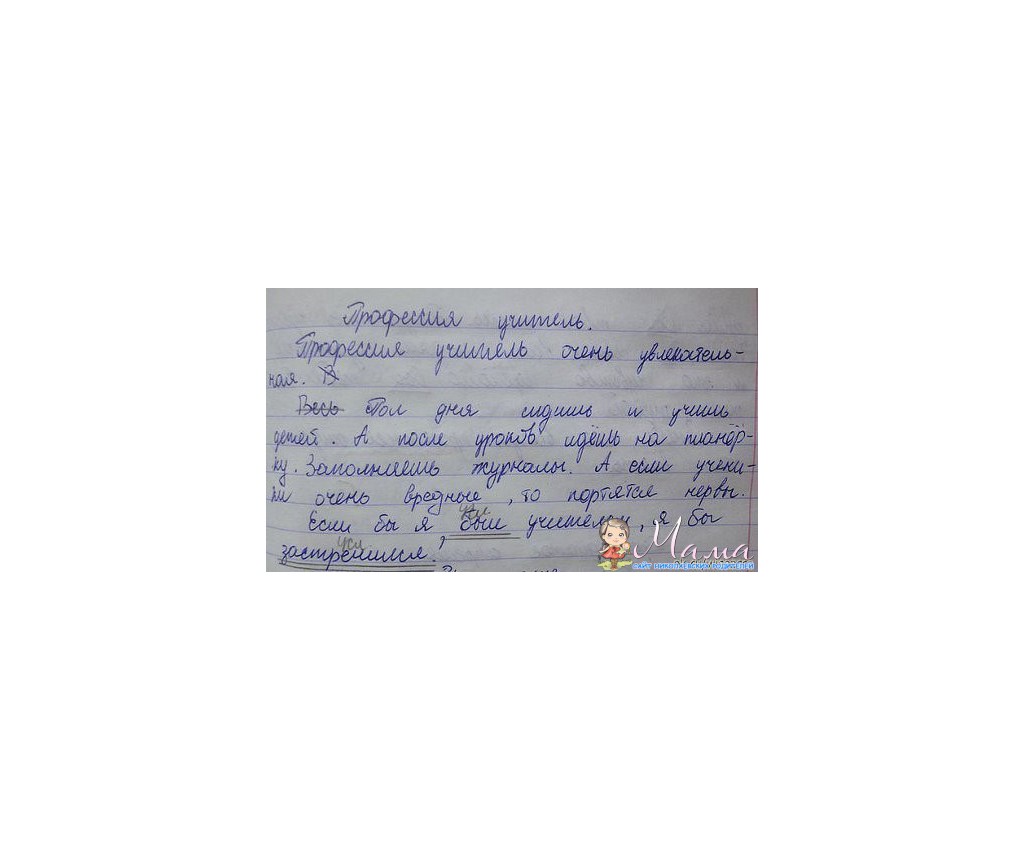 Профессия учитель.
Профессия учитель очень увлекатель-
ная. В
Весь Пол дня сидишь и учишь
детей. А после уроков идёшь на планёр-
ку. Заполняешь журналы. А если учени-
ки очень вредные, то портятся нервы.
Если бы я, был учителем, я бы
застрелился.
Мама
САЙТ НИКОЛАЕВСКИХ РОДИТЕЛЕЙ